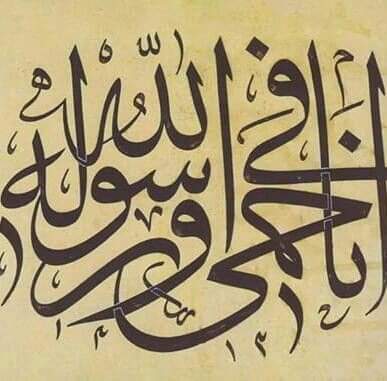 انا في حمى الله ورسوله